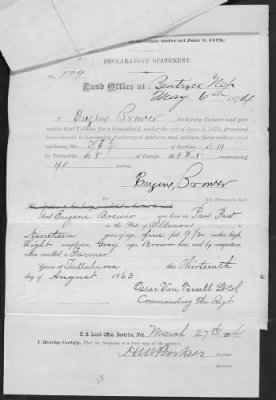 under act June 8, 1872.
DECLARATORY STATEMENT.
No. 179
Land Office at Beatrice Neb
May 6th 1874
I Eugene Brower, do hereby declare and give
notice that I claim for a homestead, under the act of June 8, 1872, granting
homesteads to honorably discharged soldiers and sailors, their widows and
the of Section
in Township of Range containing
40
Eugene, Brower
That Eugene Brewer was born in Paw Paw
in the State of Illinois
Nineteen years of age, five feet 9 1/2 inches high
Light complexion Gray eyes, Brown hair, and by occupation,
when enrolled a Farmer
Given at Tullahoma this Thirteenth
day of August 1863
Oscar Van Tassell Lt Col
Commanding the Regt
U. S. Land Office, Beatrice, Neb., March 27th
I Hereby Certify, That the foregoing is a true copy of the original.
HW Parker